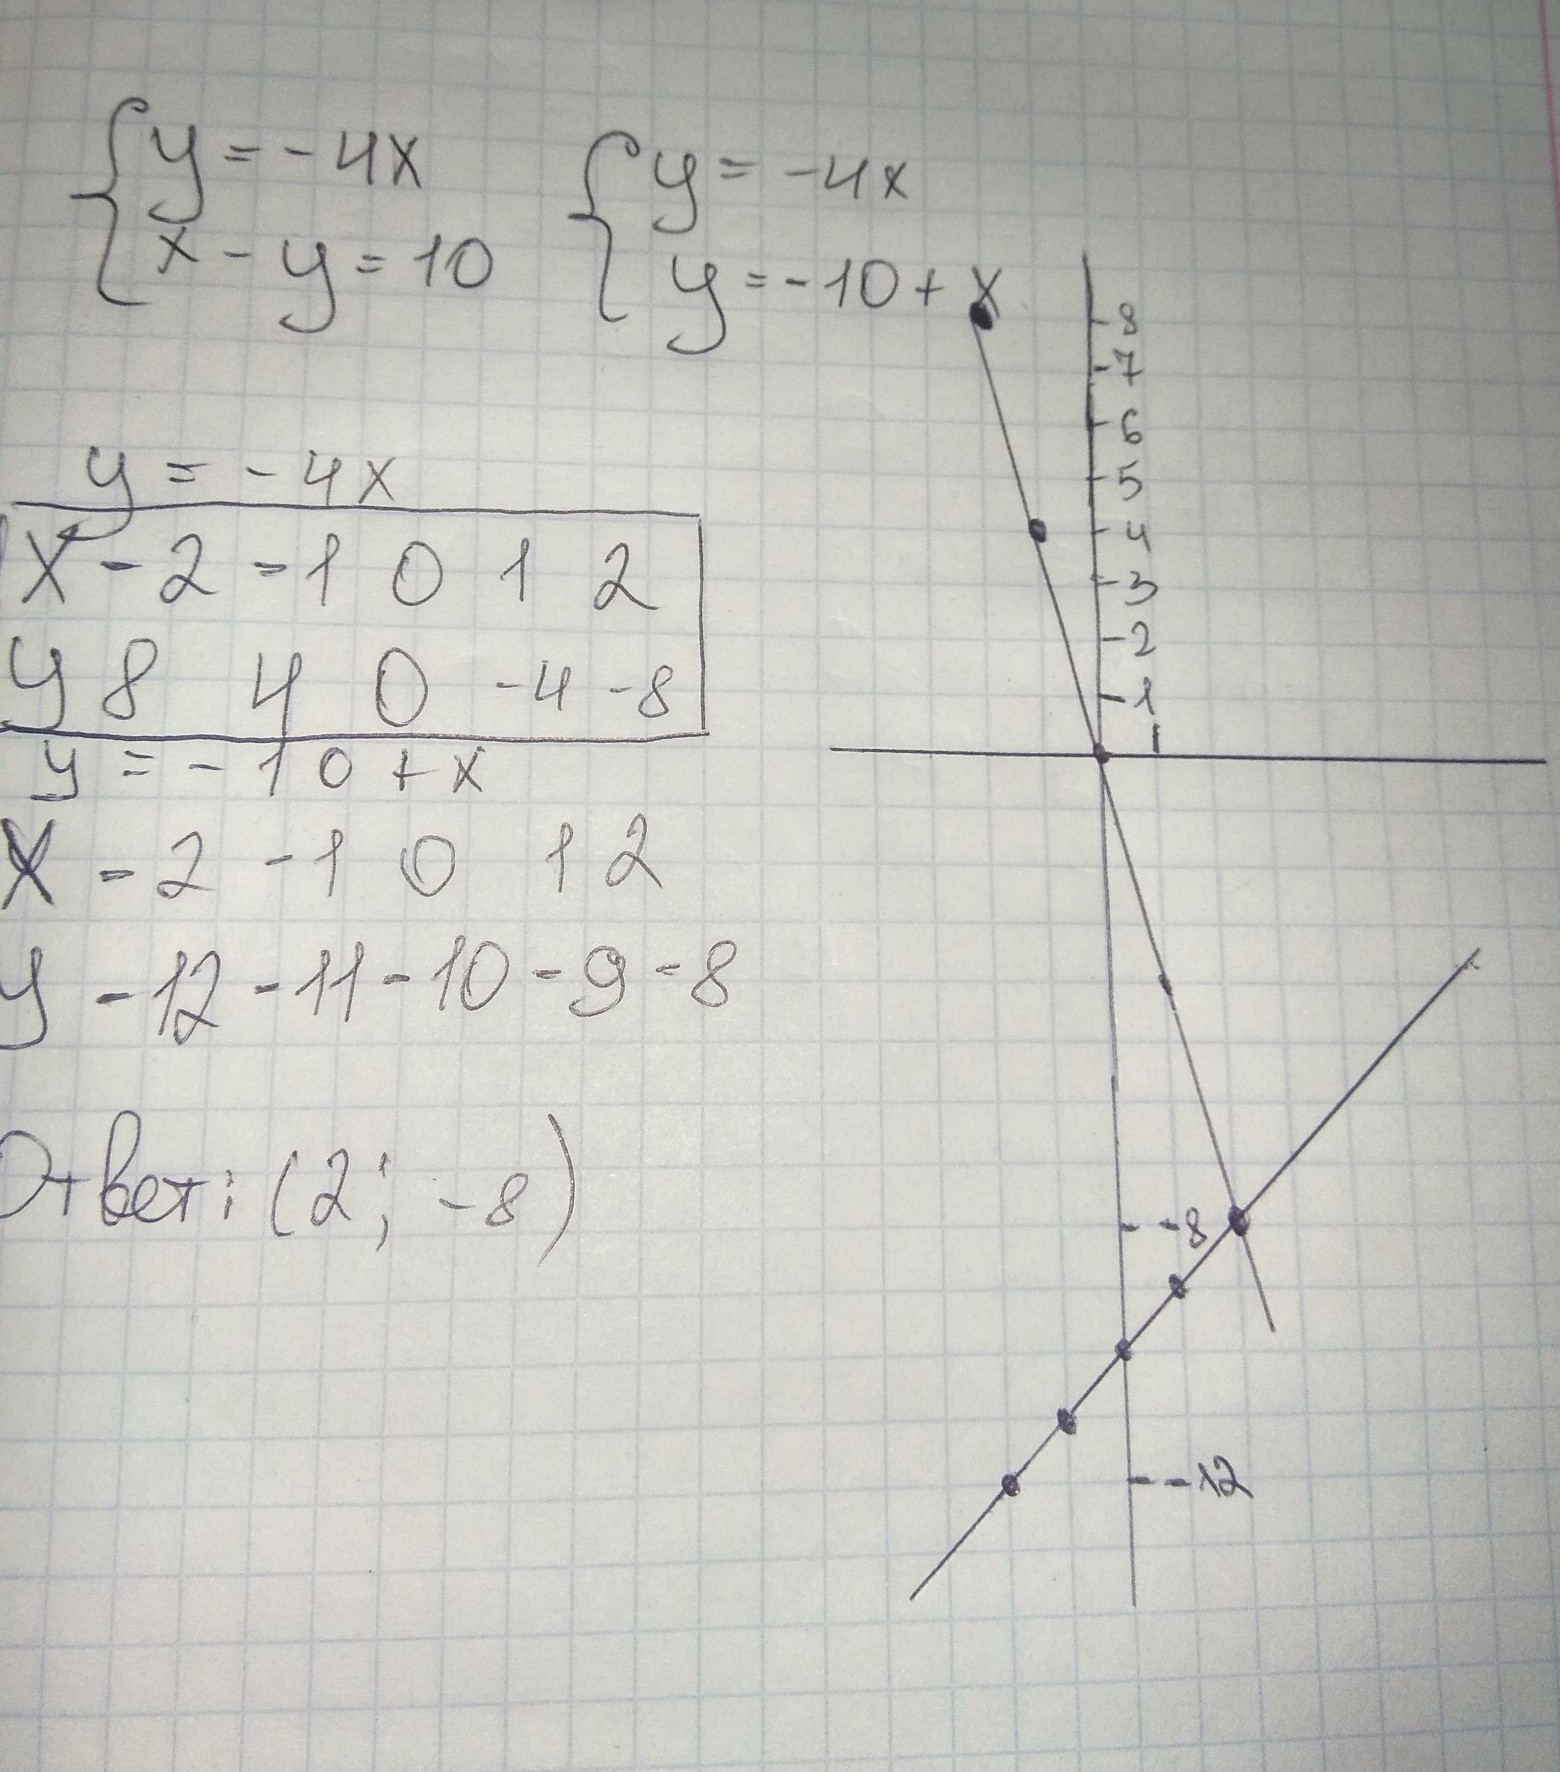 y = -4x
x - y = 10
y = -4x
y = -10 + x
y = -4x
x -2 -1 0 1 2
y 8 4 0 -4 -8
y = -10 + x
x -2 -1 0 1 2
y -12 -11 -10 -9 -8
Ответ: (2; -8)
8
7
6
5
4
3
2
1
1
-8
-12